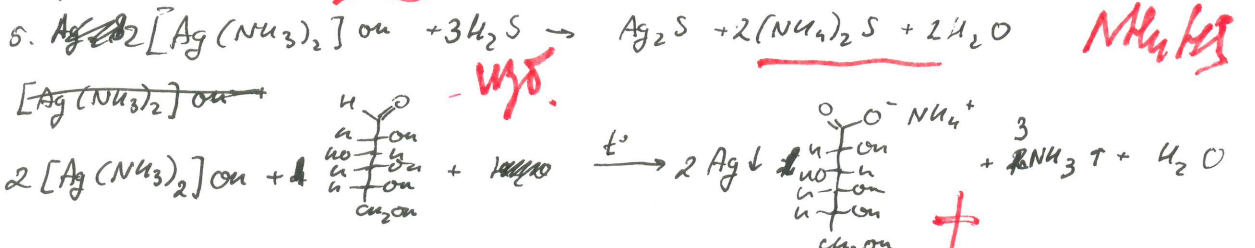 5. 2[Ag(NH₃)₂]OH + 3H₂S → Ag₂S + 2(NH₄)₂S + 2H₂O NH₄HS
изб.
[Ag(NH₃)₂]OH +
2[Ag(NH₃)₂]OH + H O H OH HO H H OH H OH CH₂OH + t° → 2Ag↓ O O⁻ NH₄⁺ H OH HO H H OH H OH CH₂OH + 3NH₃↑ + H₂O
+